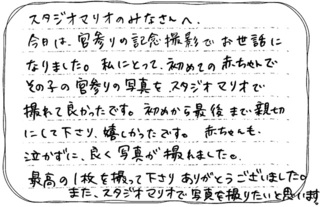 スタジオマリオのみなさんへ.
今日は、宮参りの記念撮影でお世話に
なりました。私にとって、初めての赤ちゃんで
その子の宮参りの写真を スタジオマリオで
撮れて良かったです。初めから最後まで親切
にして下さり、嬉しかったです。 赤ちゃんも、
泣かずに、良く写真が撮れました。
最高の1枚を撮って下さり ありがとうございました。
また、スタジオマリオで写真を撮りたいと思います